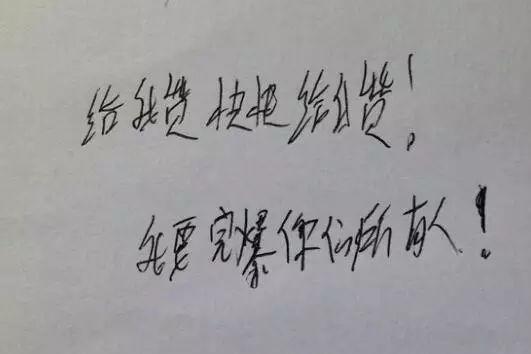 给我赞快把给我赞!
我要完爆你们所有人!